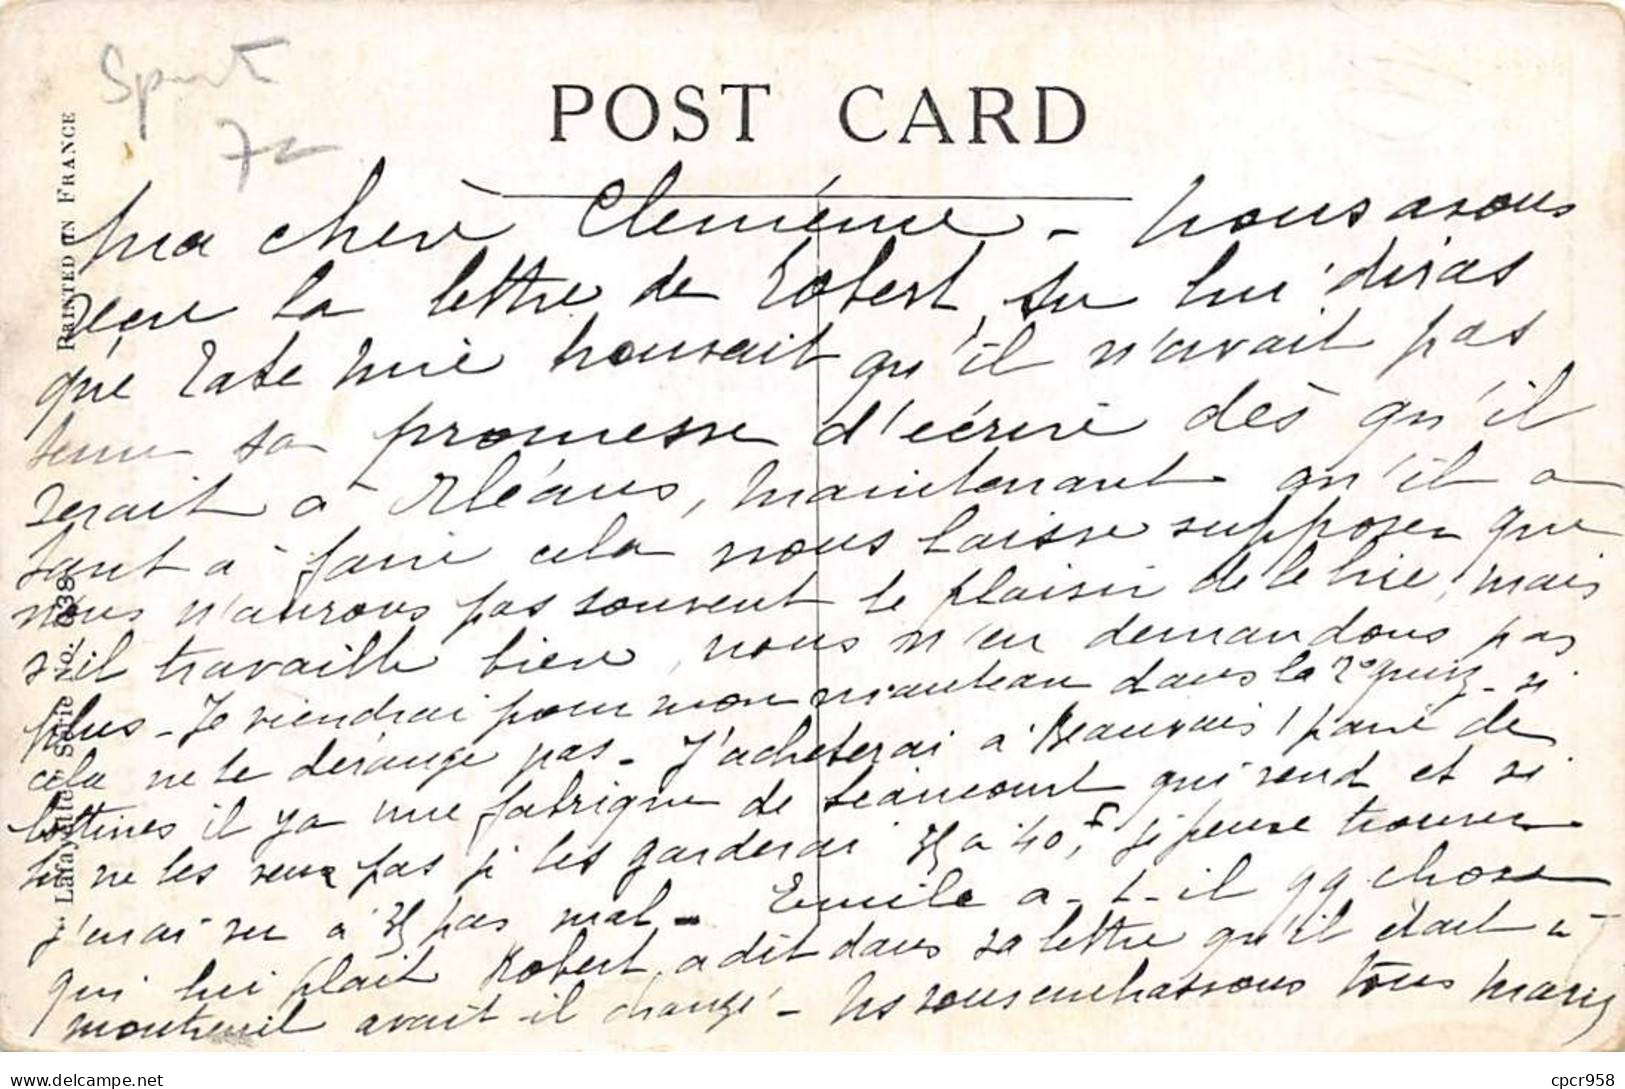 Sport
72
POST CARD
PRINTED IN FRANCE
Lafayette Série No. 638
Ma chère Clémence - Nous avons
reçu la lettre de Robert, tu lui diras
que Tate Mie trouvait qu'il n'avait pas
tenu sa promesse d'écrire dès qu'il
serait à Orléans, maintenant qu'il a
tant à faire cela nous laisse supposer que
nous n'aurons pas souvent le plaisir de le lire, mais
s'il travaille bien, nous n'en demandons pas
plus - Je viendrai pour mon manteau dans la 2e quinz. si
cela ne te dérange pas - J'achèterai à Beauvais 1 paire de
bottines il y a une fabrique de Liancourt qui vend et si
tu ne les veux pas je les garderai 35 à 40f, si je peux trouver
j'en ai vu à 35 pas mal - Emile a-t-il qq chose
qui lui plaît Robert a dit dans sa lettre qu'il était à
Montreuil avait-il changé - Ns vous embrassons tous Marie
cpcr958